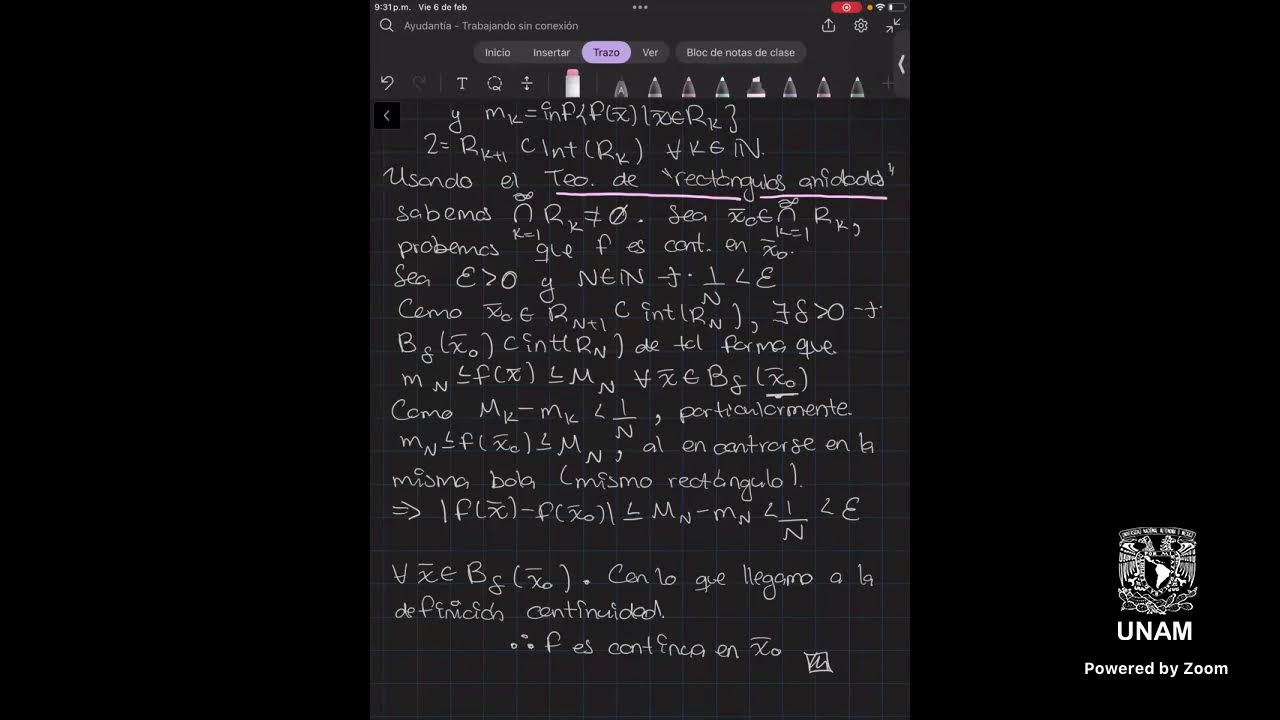 9:31 p.m. Vie 6 de feb
Ayudantía – Trabajando sin conexión
Inicio Insertar Trazo Ver Bloc de notas de clase
y m_K = inf{f(x̄) | x̄ ∈ R_K}
2= R_{K+1} ⊂ Int(R_K) ∀ K ∈ ℕ.
Usando el Teo. de "rectángulos anidados"
sabemos ⋂_{K=1}^∞ R_K ≠ ∅. Sea x̄_0 ∈ ⋂_{K=1}^∞ R_K,
probemos que f es cont. en x̄_0.
Sea ε > 0 y N ∈ ℕ t. 1/N < ε
Como x̄_0 ∈ R_{N+1} ⊂ int(R_N), ∃ δ > 0 t.
B_δ(x̄_0) ⊂ int(R_N) de tal forma que.
m_N ≤ f(x̄) ≤ M_N ∀ x̄ ∈ B_δ(x̄_0)
Como M_K − m_K < 1/N, particularmente.
m_N ≤ f(x̄_0) ≤ M_N, al encontrarse en la
misma bola (mismo rectángulo).
⇒ |f(x̄) − f(x̄_0)| ≤ M_N − m_N < 1/N < ε
∀ x̄ ∈ B_δ(x̄_0). Con lo que llegamo a la
definición continuidad.
∴ f es continua en x̄_0
UNAM
Powered by Zoom